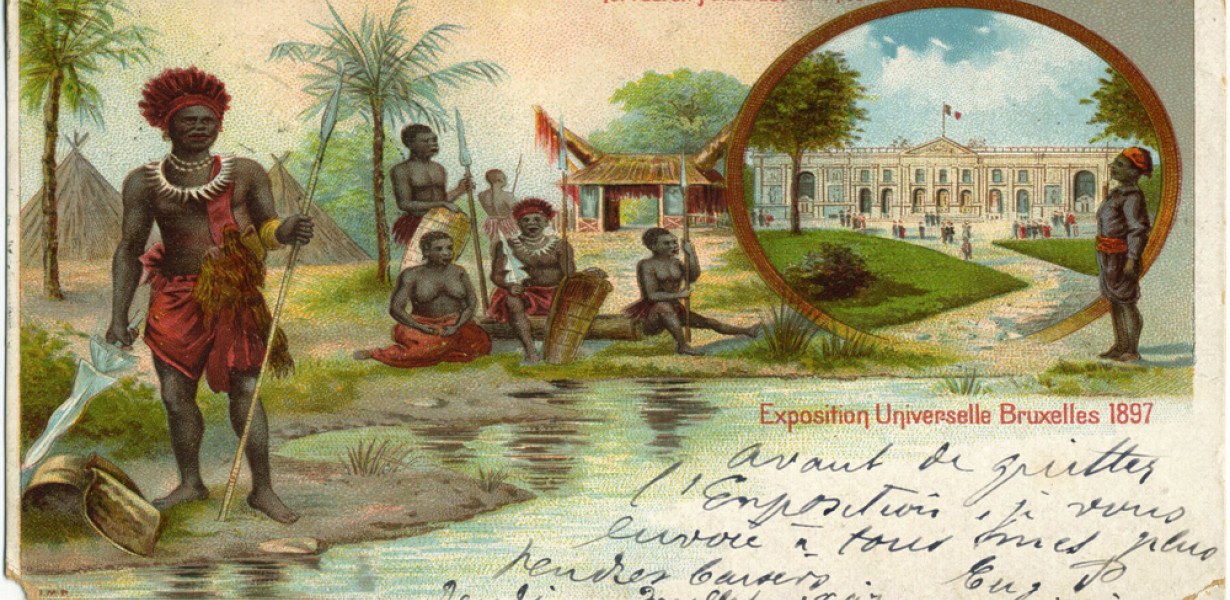 Exposition Universelle Bruxelles 1897
avant de quitter
l'Exposition, je vous
envoie à tous mes plus
tendres baisers Eug. P